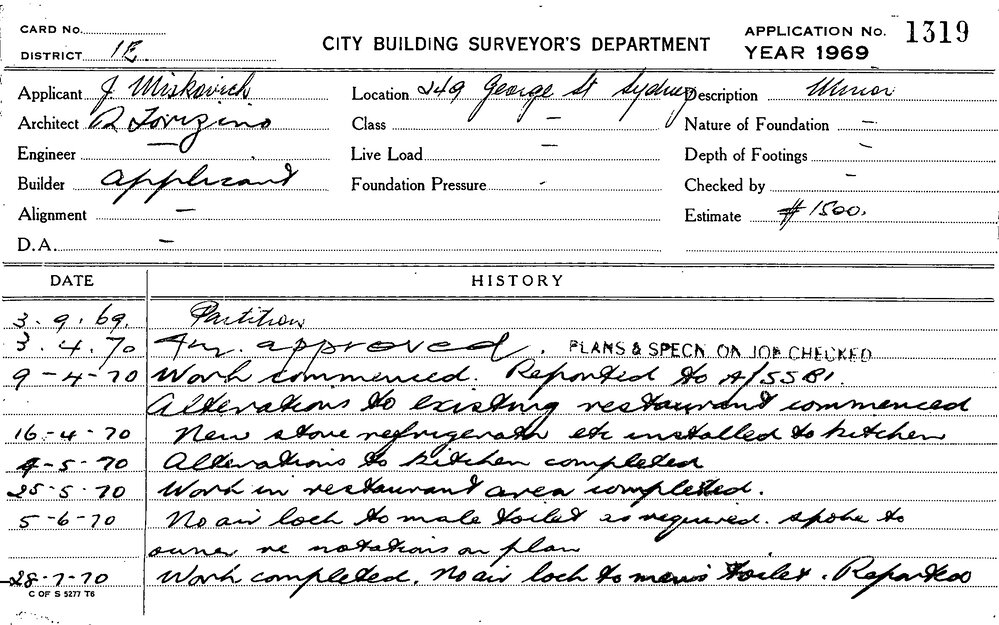 CARD No.
DISTRICT 1E.
CITY BUILDING SURVEYOR'S DEPARTMENT
APPLICATION No. 1319
YEAR 1969
Applicant J Miskovich
Location 249 George St Sydney
Description Minor
Architect
Class —
Nature of Foundation —
Engineer —
Live Load —
Depth of Footings -
Builder Applicant
Foundation Pressure -
Checked by -
Alignment —
Estimate $1500.
D.A. —
DATE HISTORY
3.9.69. Partition
3.4.70 approved. PLANS & SPECN ON JOB CHECKED
9-4-70 Work commenced. Reported to A/SSBI.
Alterations to existing restaurant commenced
16-4-70 New stove refrigerator etc installed to kitchen
9-5-70 Alterations to kitchen completed
25-5-70 Work in restaurant area completed.
5-6-70 No air lock to male toilet as required. spoke to
owner re notations on plan
28-7-70 Work completed. No air lock to men's toilet. Reported
C OF S 5277 T6